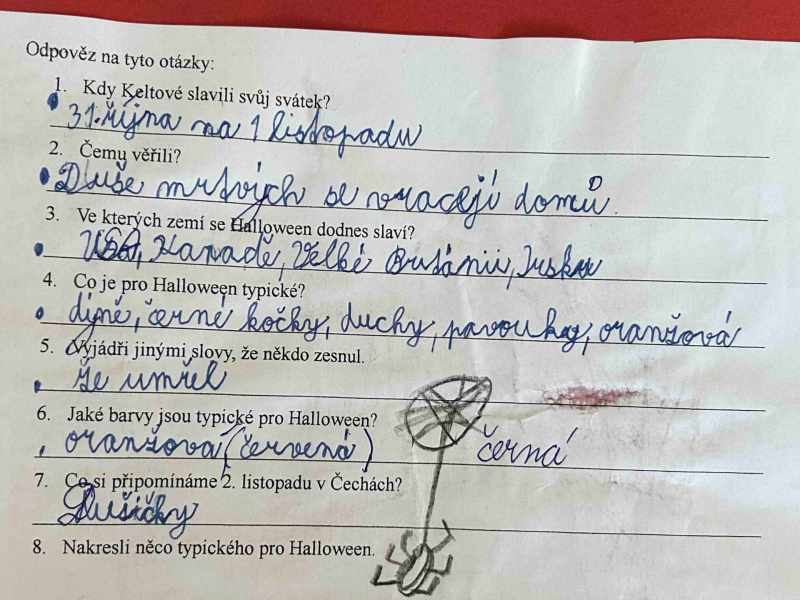 Odpověz na tyto otázky:
1. Kdy Keltové slavili svůj svátek?
31. října na 1 listopadu
2. Čemu věřili?
Duše mrtvých se vracejí domů.
3. Ve kterých zemí se Halloween dodnes slaví?
USA, Kanadě, Velké Británii, Irsku
4. Co je pro Halloween typické?
dýně, černé kočky, duchy, pavouky, oranžová
5. Vyjádři jinými slovy, že někdo zesnul.
že umřel
6. Jaké barvy jsou typické pro Halloween?
oranžová (červená) černá
7. Co si připomínáme 2. listopadu v Čechách?
Dušičky
8. Nakresli něco typického pro Halloween.